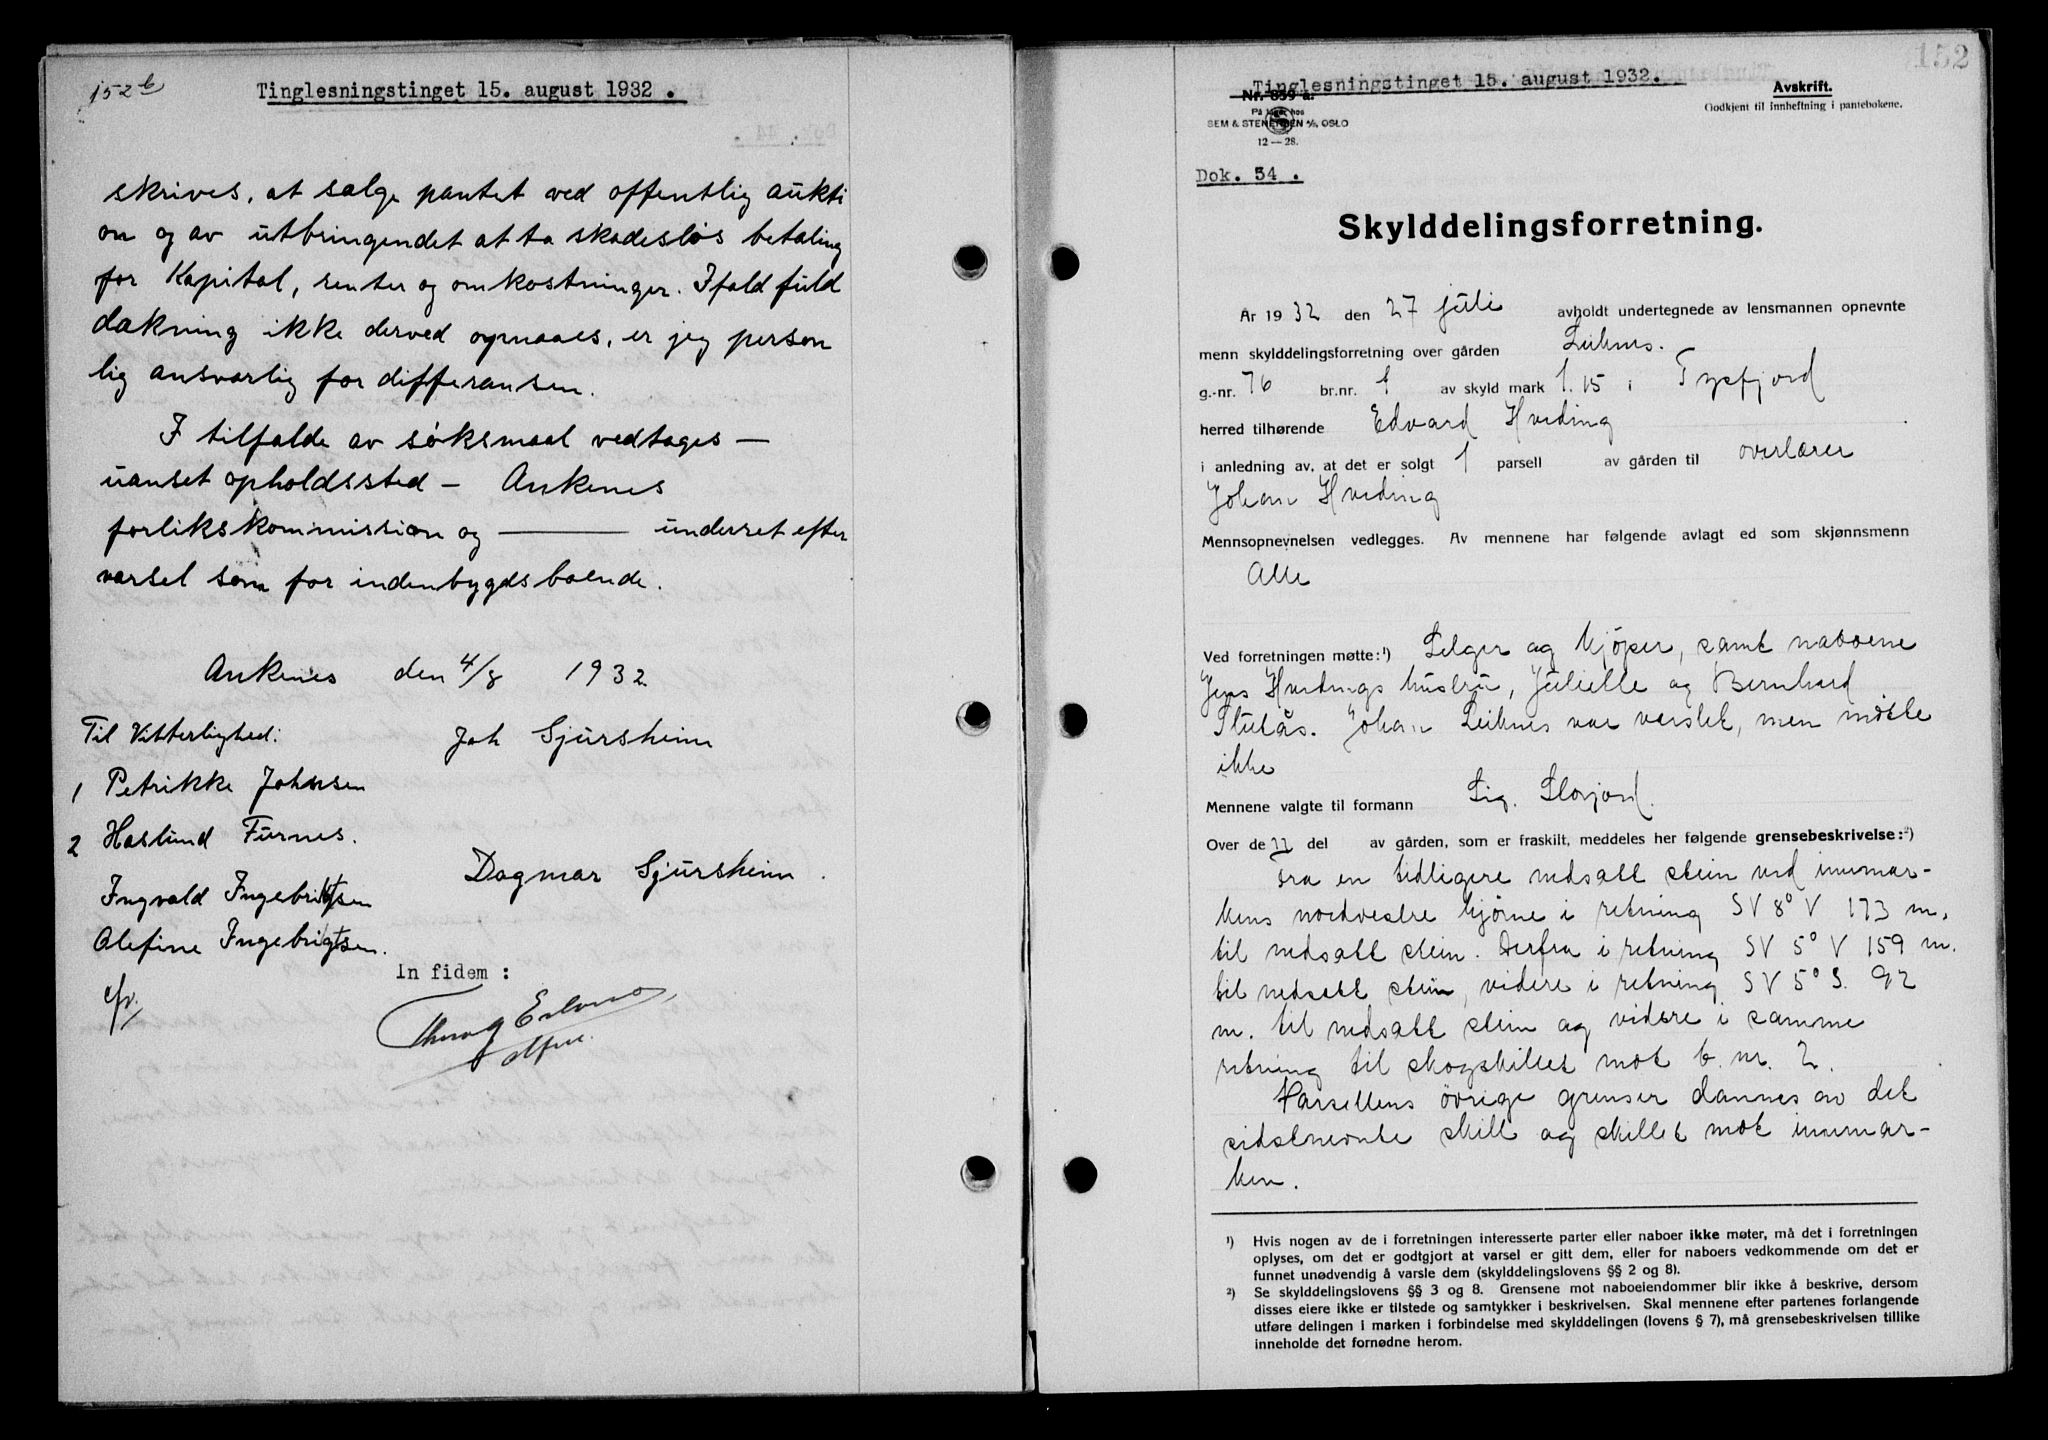 152 b
Tinglesningstinget 15. august 1932.
skrives, at sælge pantet ved offentlig aukti
on og av utbringendet at ta skadesløs betaling
for Kapital, renter og omkostninger. Ifald fuld
dækning ikke derved opnaaes, er jeg person
lig ansvarlig for differansen.
I tilfælde av søksmaal vedtages —
uanset opholdssted — Ankenes
forlikskommission og ——— underret efter
varsel som for indenbygdsboende.
Ankenes den 4/8 1932
Til Vitterlighed:
Joh Sjursheim
1 Petrikke Johnsen
2 Haslund Furnes.
Dagmar Sjursheim.
Ingvald Ingebrigtsen
Alefine Ingebrigtsen.
In fidem :
152
Tinglesningstinget 15. august 1932.
Nr. 839 a.
På lager hos
SEM & STENERSEN A/S, OSLO
12—28.
Avskrift.
Godkjent til innheftning i pantebøkene.
Dok. 54 .
Skylddelingsforretning.
År 1932 den 27 juli avholdt undertegnede av lensmannen opnevnte
menn skylddelingsforretning over gården Leiknes.
g.-nr. 76 br.nr. 1 av skyld mark 1.15 i Tysfjord
herred tilhørende Edvard Hveding
i anledning av, at det er solgt 1 parsell av gården til overlærer
Johan Hveding
Mennsopnevnelsen vedlegges. Av mennene har følgende avlagt ed som skjønnsmenn
Alle
Ved forretningen møtte:¹) Selger og kjøper, samt naboene
Jens Hvedings hustru, Julielle og Bernhard
Stulås. Johan Leiknes var varslet, men møtte
ikke
Mennene valgte til formann Sig. Storjord.
Over de 11 del av gården, som er fraskilt, meddeles her følgende grensebeskrivelse:²)
Fra en tidligere nedsatt stein ved innmar-
kens nordvestre hjørne i retning SV 8° V 173 m.
til nedsatt stein. Derfra i retning SV 5° V 159 m.
til nedsatt stein, videre i retning SV 5° S. 92
m. til nedsatt stein og videre i samme
retning til skogskillet mot b. nr. 2.
Parsellens øvrige grenser dannes av det
sidstnevnte skill og skillet mot innmar-
ken.
¹) Hvis nogen av de i forretningen interesserte parter eller naboer ikke møter, må det i forretningen
oplyses, om det er godtgjort at varsel er gitt dem, eller for naboers vedkommende om det er
funnet unødvendig å varsle dem (skylddelingslovens §§ 2 og 8).
²) Se skylddelingslovens §§ 3 og 8. Grensene mot naboeiendommer blir ikke å beskrive, dersom
disses eiere ikke er tilstede og samtykker i beskrivelsen. Skal mennene efter partenes forlangende
utføre delingen i marken i forbindelse med skylddelingen (lovens § 7), må grensebeskrivelsen tillike
inneholde det fornødne herom.